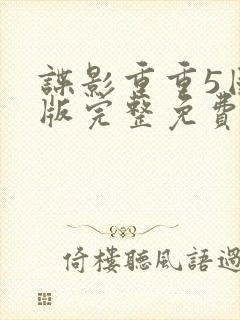 諜影重重5国
版完整免費
倚樓聽風語過